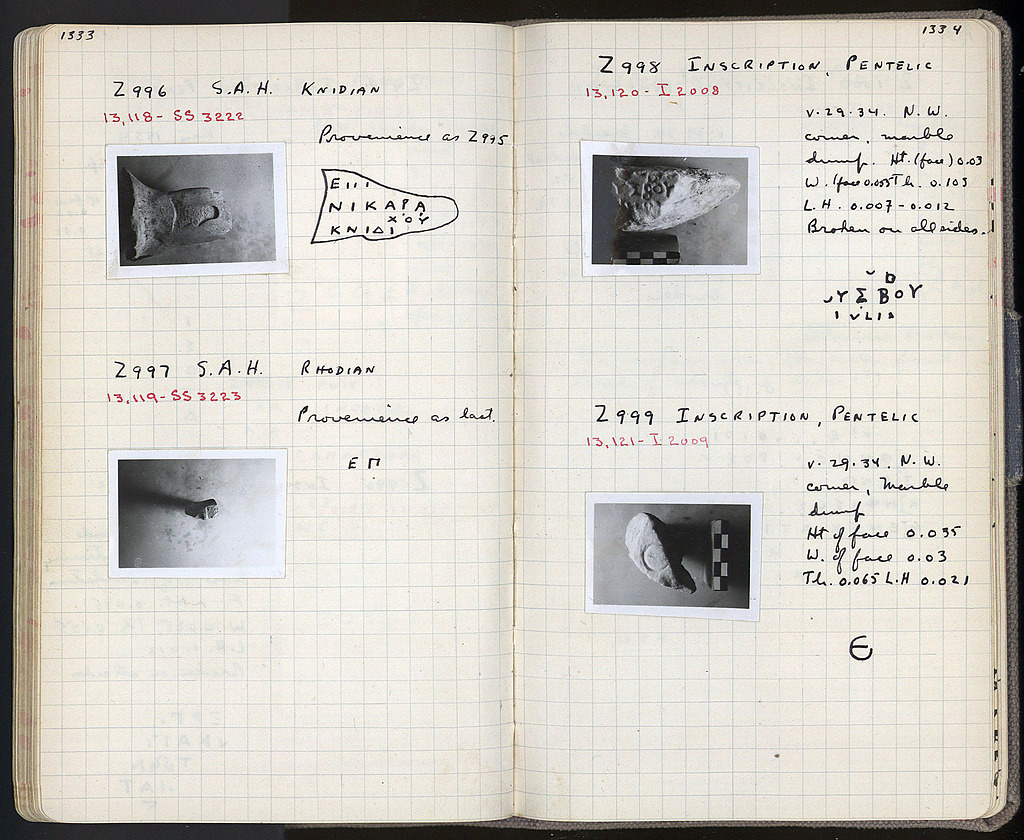 1333
Z996 S.A.H. KNIDIAN
13,118- SS 3222
Provenience as Z995
ΕΠΙ
ΝΙΚΑΡΑ
ΧΟΥ
ΚΝΙΔΙ
Z997 S.A.H. RHODIAN
13,119- SS 3223
Provenience as last.
ΕΠ
1334
Z998 INSCRIPTION, PENTELIC
13,120- I 2008
v.29.34. N.W.
corner, marble
dump. Ht. (face) 0.03
W. (face 0.055 Th. 0.103
L.H. 0.007-0.012
Broken on all sides.
ΥΣΒΟΥ
Z999 INSCRIPTION, PENTELIC
13,121- I 2009
v.29.34. N.W.
corner, Marble
dump
Ht of face 0.035
W. of face 0.03
Th. 0.065 L.H 0.021
Є